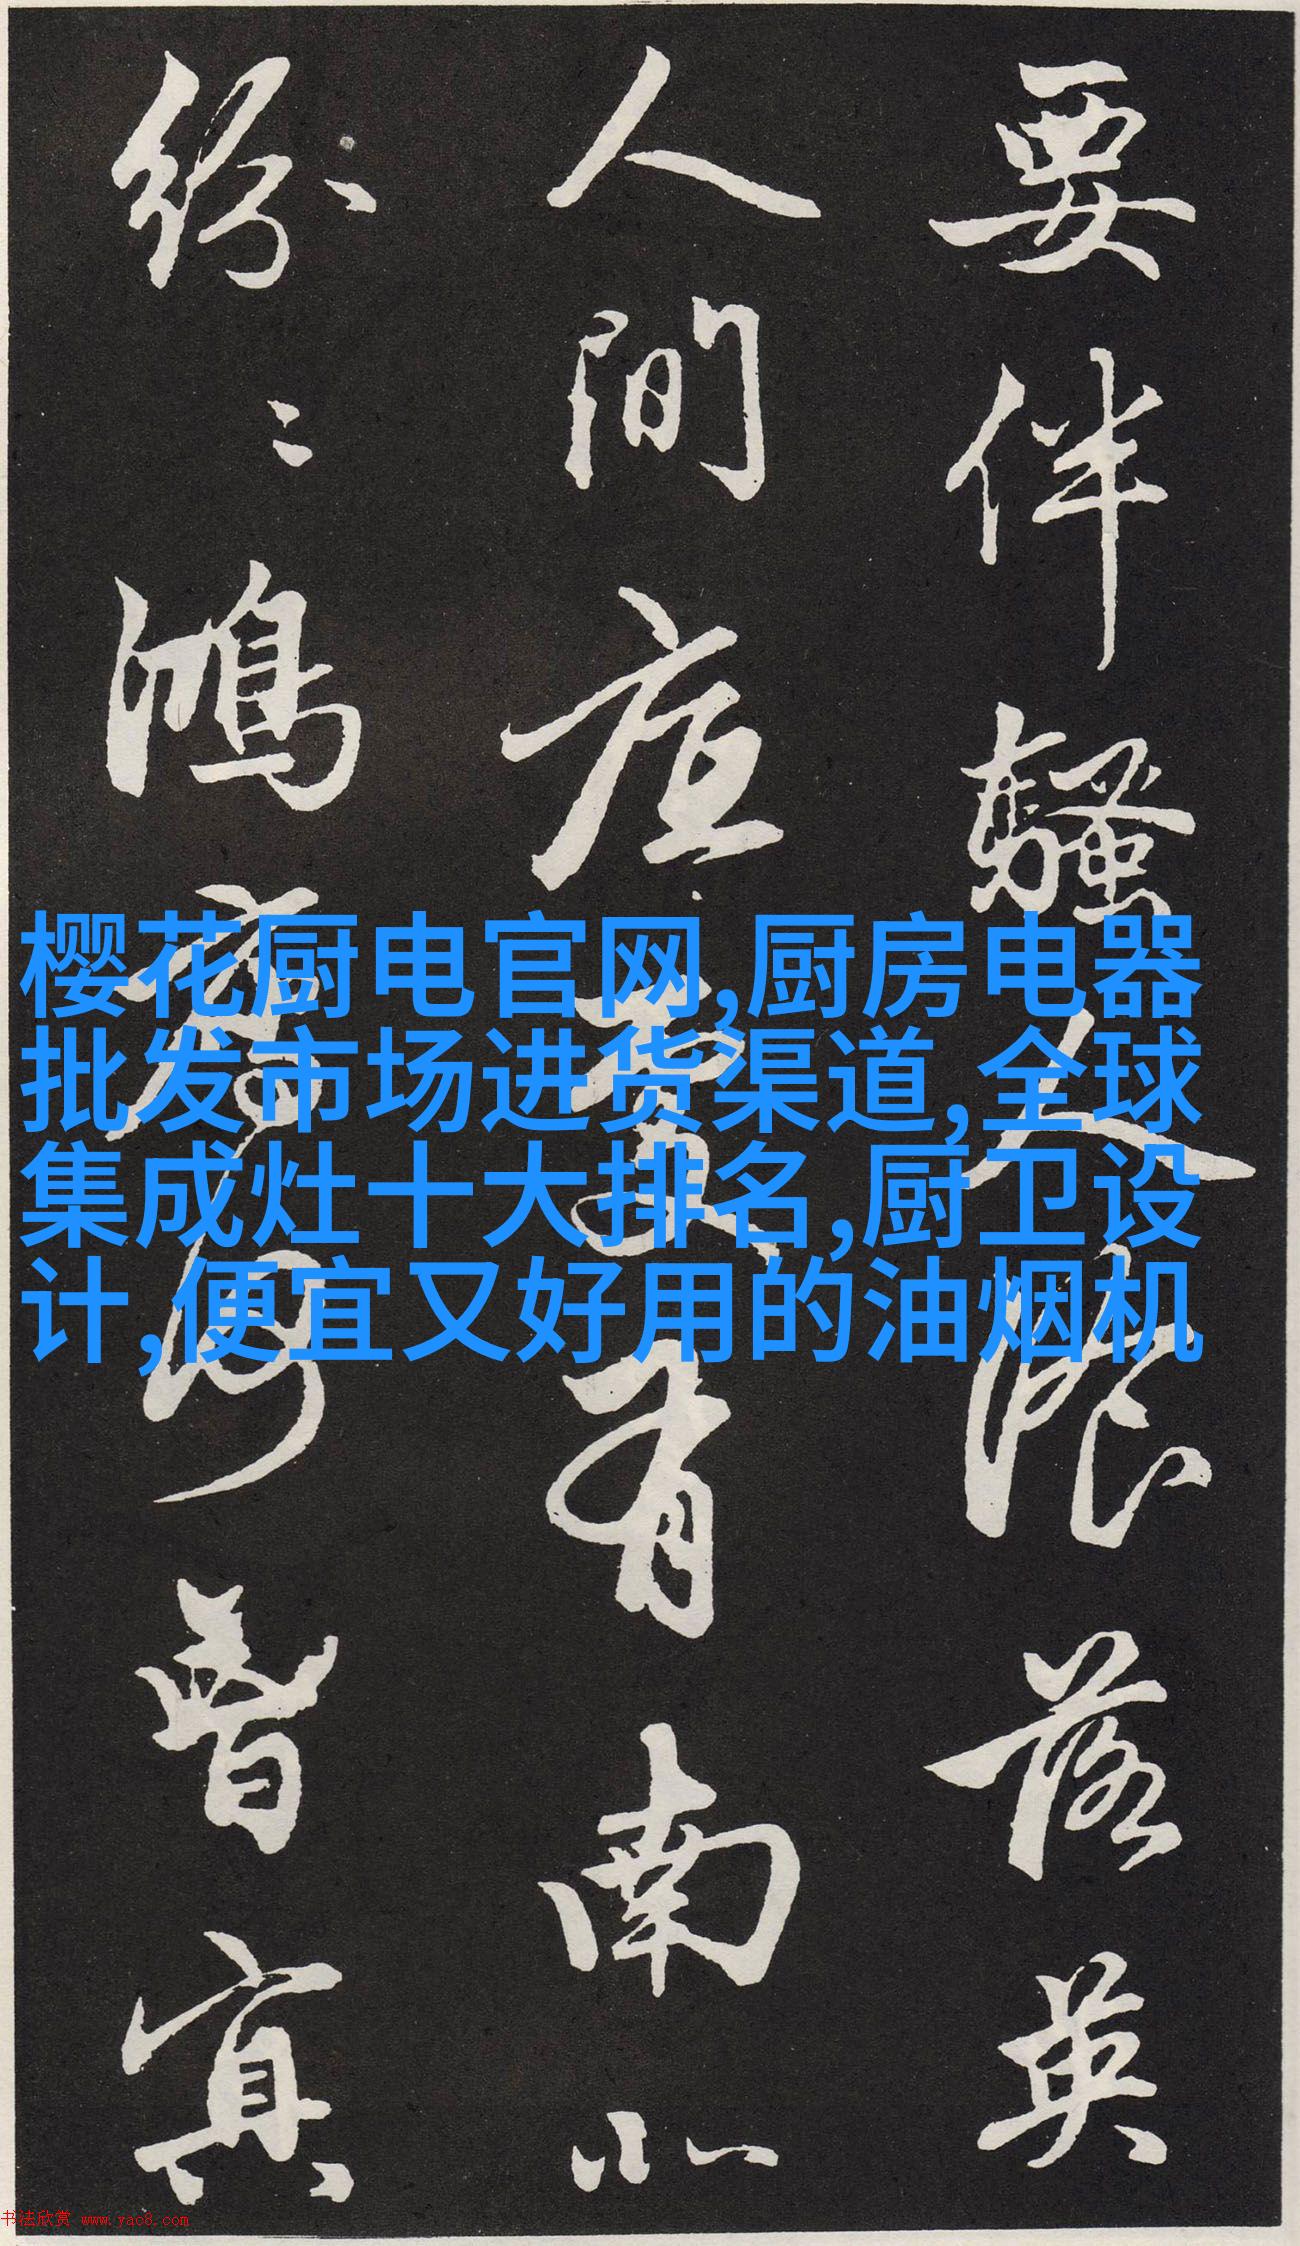 要伴騷人湌落英
人間底處有南北
紛〻鴻雁何曾冥
樱花厨电官网,厨房电器
批发市场进货渠道,全球
集成灶十大排名,厨卫设
计,便宜又好用的油烟机
书法欣赏 www.yac8.com